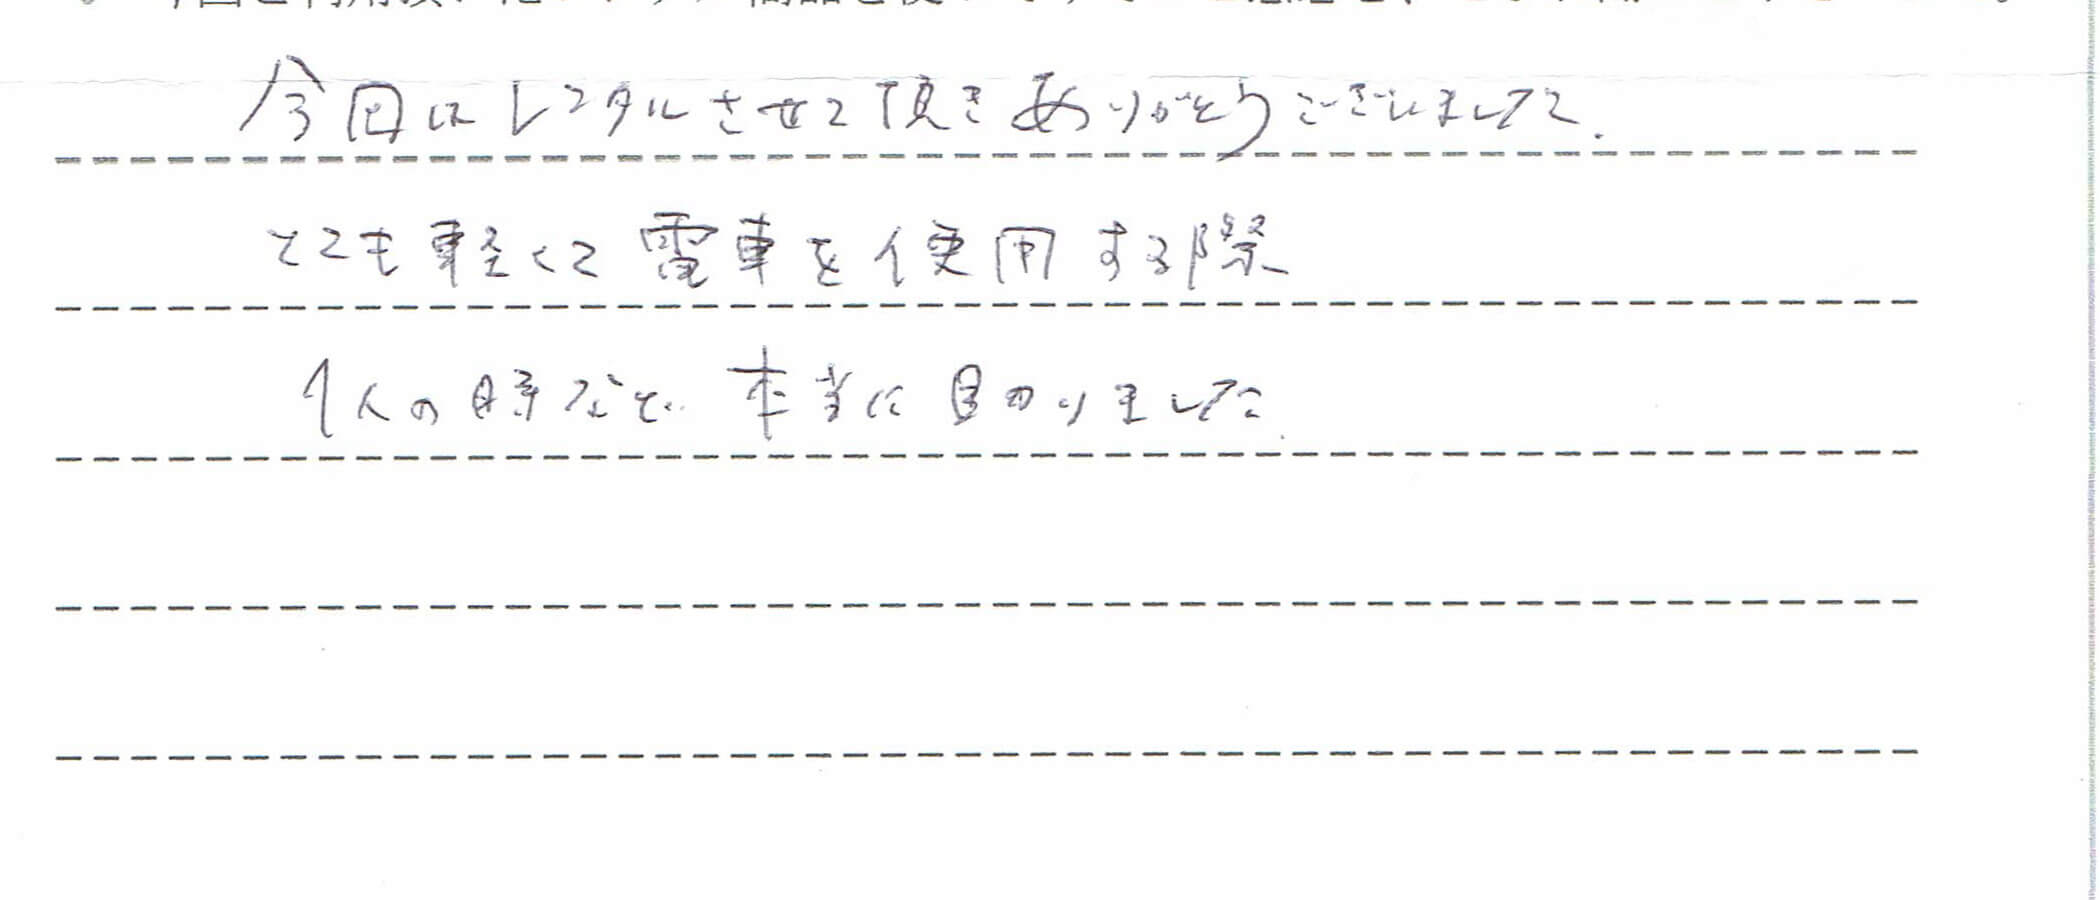 今回はレンタルさせて頂きありがとうございました.
とても軽くて電車を使用する際
1人の時など本当に助かりました.